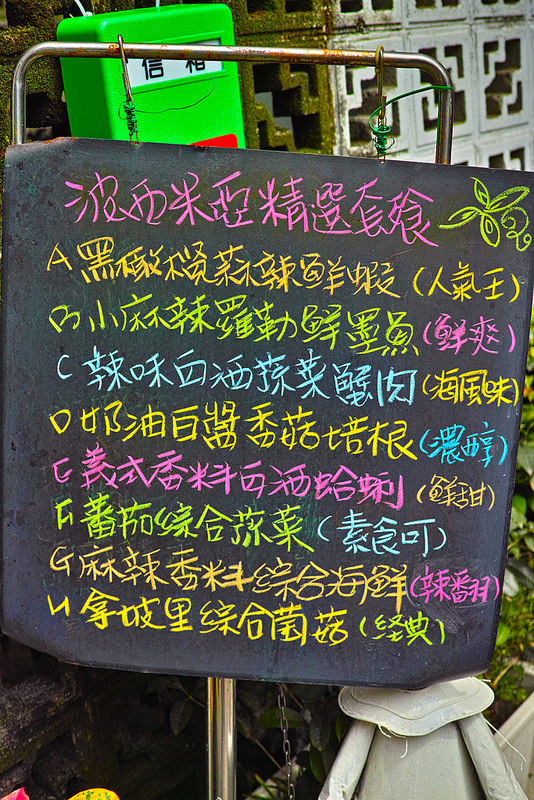 信箱
波西米亞精選套餐
A 黑橄欖蒜辣鮮蝦(人氣王)
B 小麻辣羅勒鮮墨魚(鮮爽)
C 辣味白酒蔬菜蟹肉(海風味)
D 奶油白醬香菇培根(濃醇)
E 義式香料白酒蛤蜊(鮮甜)
F 番茄綜合蔬菜(素食可)
G 麻辣香料綜合海鮮(辣翻)
H 拿坡里綜合菌菇(经典)